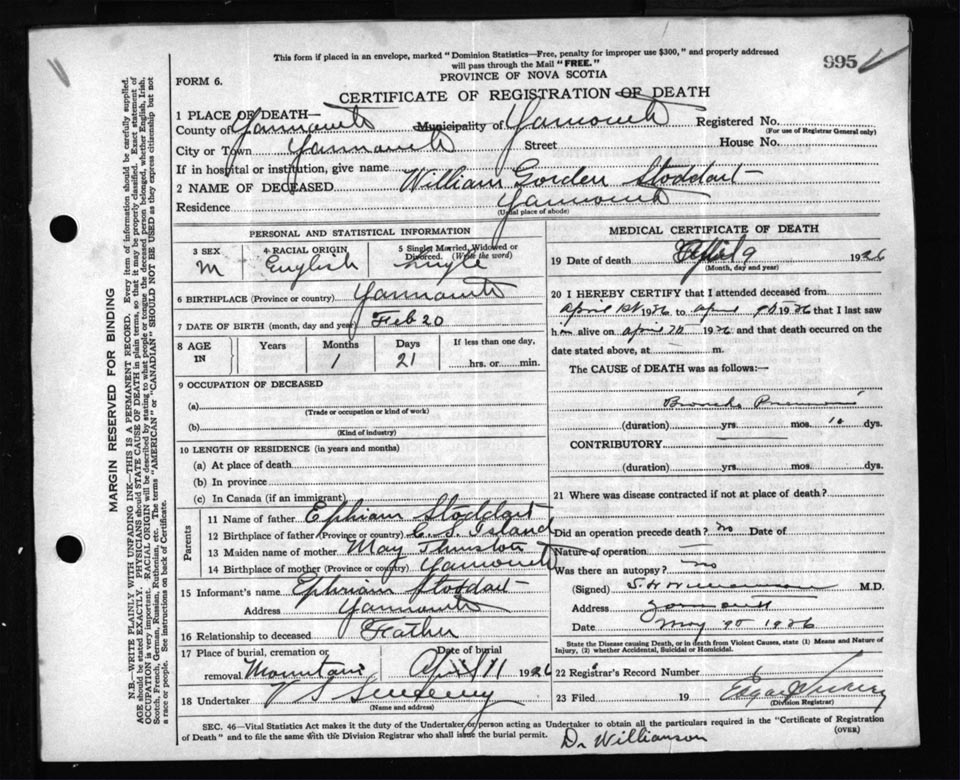 This form if placed in an envelope, marked "Dominion Statistics—Free, penalty for improper use $300," and properly addressed
will pass through the Mail "FREE."
995
PROVINCE OF NOVA SCOTIA
FORM 6.
CERTIFICATE OF REGISTRATION OF DEATH
1 PLACE OF DEATH—
County of Yarmouth Municipality of Yarmouth Registered No.
(For use of Registrar General only)
City or Town Yarmouth Street House No.
If in hospital or institution, give name
2 NAME OF DECEASED William Gorden Stoddart
Residence Yarmouth
(Usual place of abode)
PERSONAL AND STATISTICAL INFORMATION
3 SEX M
4 RACIAL ORIGIN English
5 Single, Married, Widowed or Divorced. (Write the word) single
6 BIRTHPLACE (Province or country) Yarmouth
7 DATE OF BIRTH (month, day and year) Feb 20
8 AGE IN Years Months 1 Days 21 If less than one day, hrs. or min.
9 OCCUPATION OF DECEASED
(a)
(Trade or occupation or kind of work)
(b)
(Kind of industry)
10 LENGTH OF RESIDENCE (in years and months)
(a) At place of death
(b) In province
(c) In Canada (if an immigrant)
Parents
11 Name of father Ephiam Stoddart
12 Birthplace of father (Province or country) C. S. Island
13 Maiden name of mother May
14 Birthplace of mother (Province or country) Yarmouth
15 Informant's name Ephriam Stoddart
Address Yarmouth
16 Relationship to deceased Father
17 Place of burial, cremation or removal Mountain
Date of burial April 11 1926
18 Undertaker V S Sweeny
(Name and address)
MEDICAL CERTIFICATE OF DEATH
19 Date of death April 9 1926
(Month, day and year)
20 I HEREBY CERTIFY that I attended deceased from
April 1st 1926 to April 9th 1926 that I last saw
him alive on April 7th 1926 and that death occurred on
date stated above, at m.
The CAUSE of DEATH was as follows:—
Broncho Pneumonia
(duration) yrs. mos. 10 dys.
CONTRIBUTORY
(duration) yrs. mos. dys.
21 Where was disease contracted if not at place of death?
Did an operation precede death? no Date of
Nature of operation
Was there an autopsy? no
(Signed) S. H. Williamson M.D.
Address Yarmouth
Date May 1926
State the Disease causing Death, or in death from Violent Causes, state (1) Means and Nature of
Injury, (2) whether Accidental, Suicidal or Homicidal.
22 Registrar's Record Number 1
23 Filed 19 Edgar
(Division Registrar)
SEC. 46—Vital Statistics Act makes it the duty of the Undertaker or person acting as Undertaker to obtain all the particulars required in the "Certificate of Registration
of Death" and to file the same with the Division Registrar who shall issue the burial permit.
(OVER)
Dr Williamson
MARGIN RESERVED FOR BINDING
N.B.—WRITE PLAINLY WITH UNFADING INK—THIS IS A PERMANENT RECORD. Every item of information should be carefully supplied.
AGE should be stated EXACTLY. PHYSICIANS should STATE CAUSE OF DEATH in plain terms, so that it may be properly classified. Exact statement of
OCCUPATION is very important. RACIAL ORIGIN will be described by stating to what people or tongue the deceased person belonged, whether English, Irish,
Scotch, French, German, Russian, Ruthenian, etc. The terms "AMERICAN" or "CANADIAN" SHOULD NOT BE USED as they express citizenship but not
a race or people. See instructions on back of Certificate.